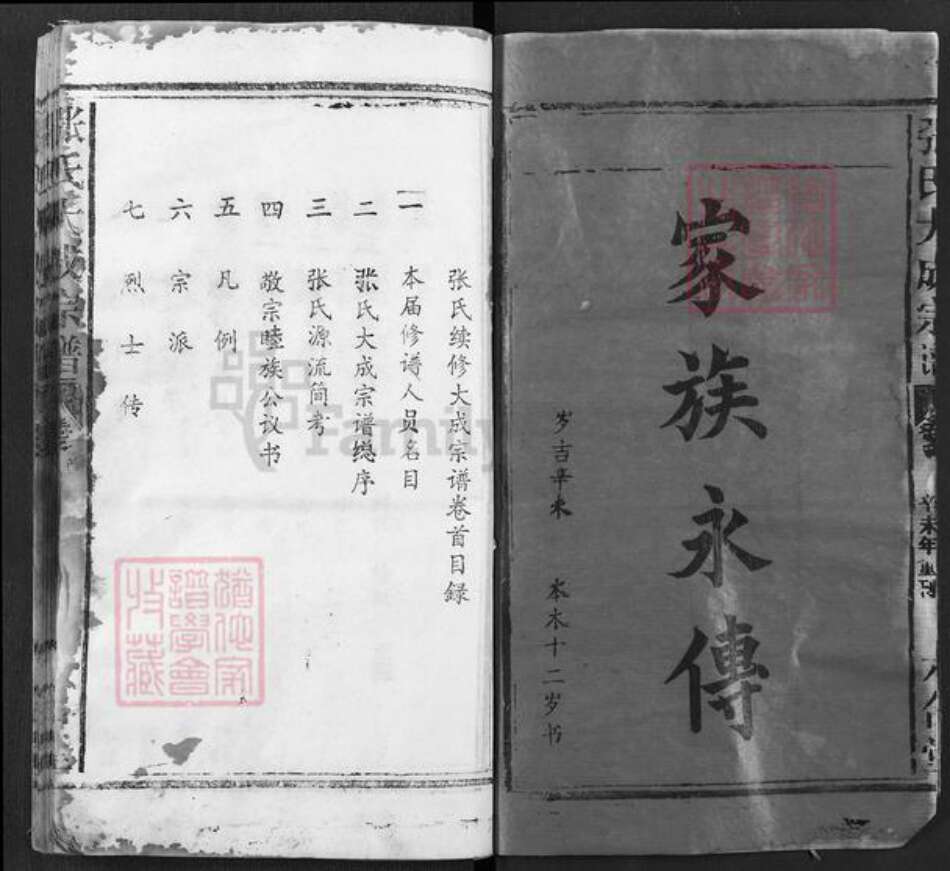 张氏大成宗谱
辛未年
家族永傳
岁吉辛未
本木十二岁书
张氏续修大成宗谱卷首目録
一 本届修谱人员名目
二 张氏大成宗谱总序
三 张氏源流简考
四 敬宗睦族公议书
五 凡例
六 宗派
七 烈士传
张氏大成宗譜
猶他家
譜學會
收藏
Family